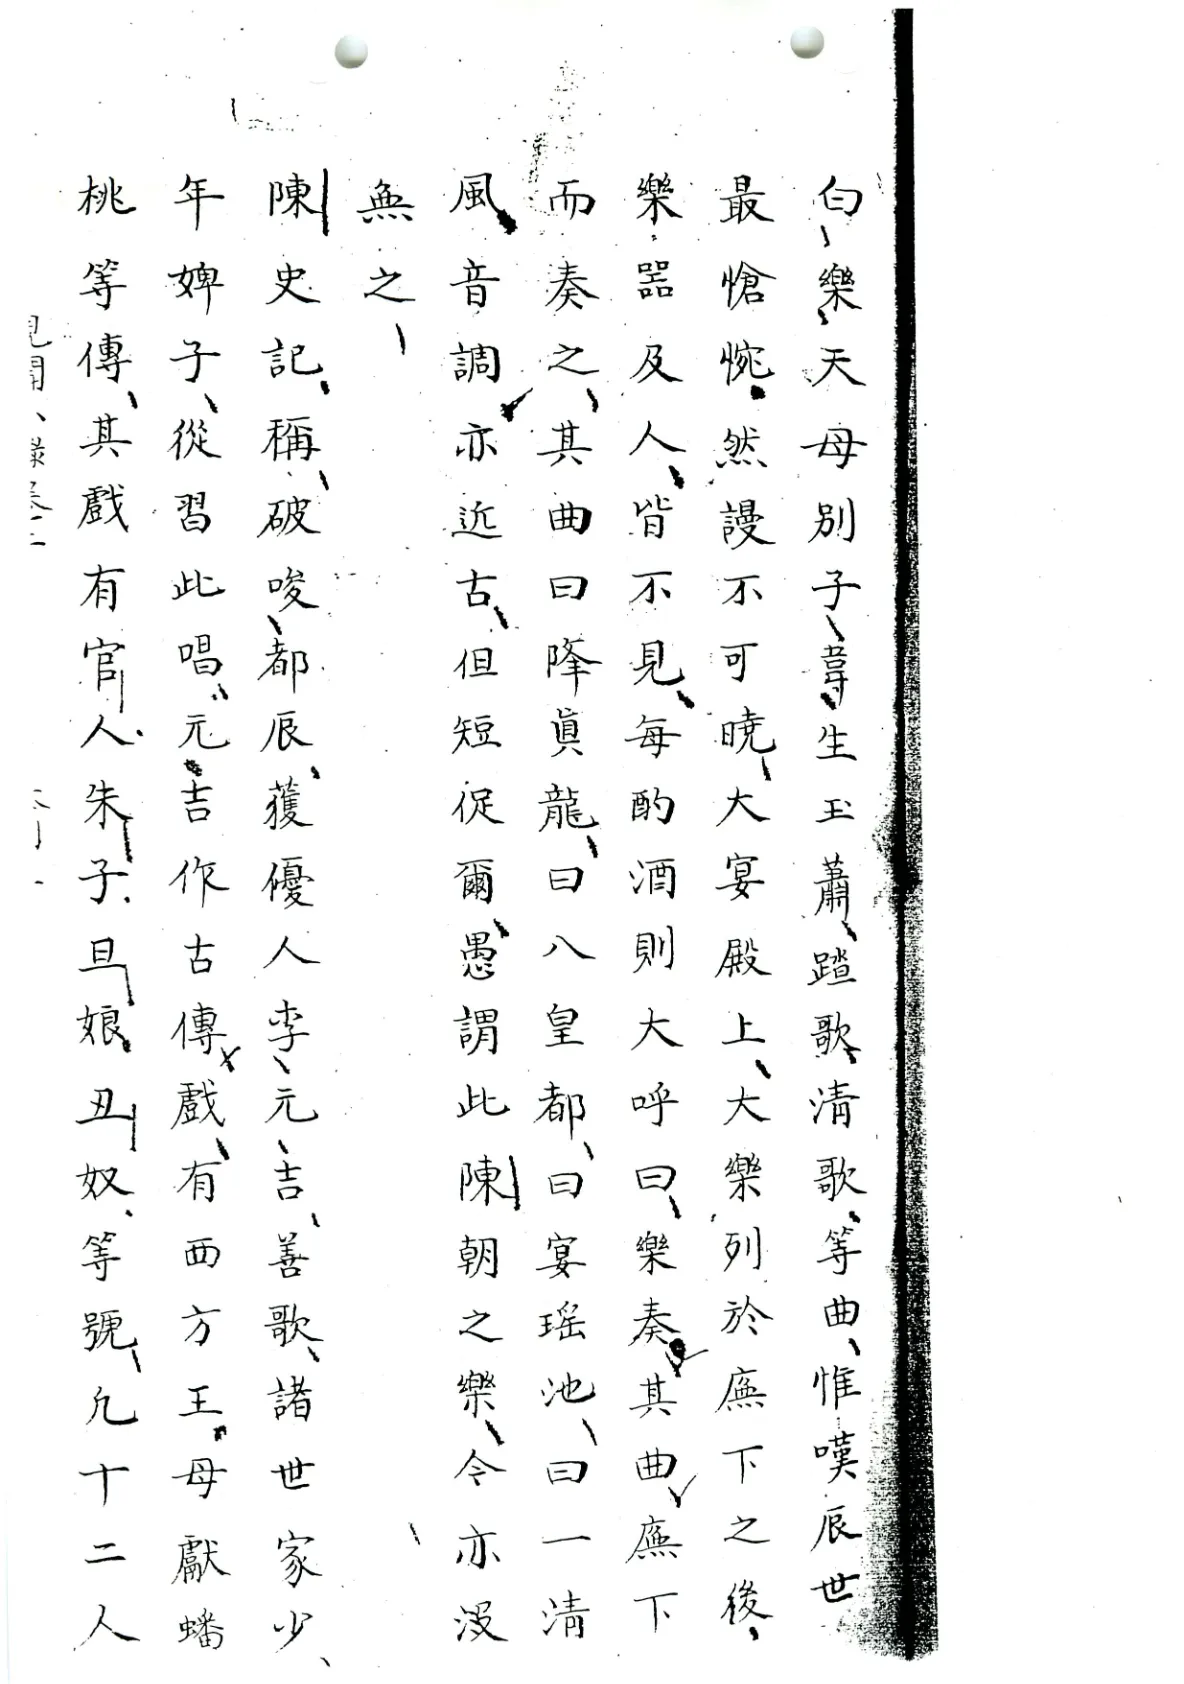 白樂天母別子韋生玉蕭踏歌清歌等曲惟嘆辰世
最愴惋然謾不可曉大宴殿上大樂列於廡下之後
樂器及人皆不見每酌酒則大呼曰樂奏其曲廡下
而奏之其曲曰降眞龍曰八皇都曰宴瑶池曰一清
風音調亦近古但短促爾愚謂此陳朝之樂今亦没
無之
陳史記稱破唆都辰獲優人李元吉善歌諸世家少
年婢子從習此唱元吉作古傳戲有西方王母獻蟠
桃等傳其戲有官人朱子旦娘丑奴等號凢十二人
見聞小錄